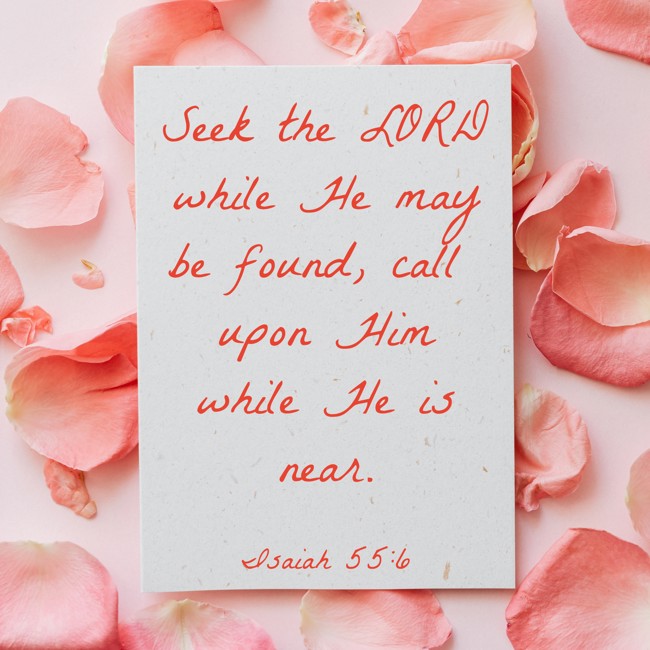 Seek the LORD
while He may
be found, call
upon Him
while He is
near.
Isaiah 55:6